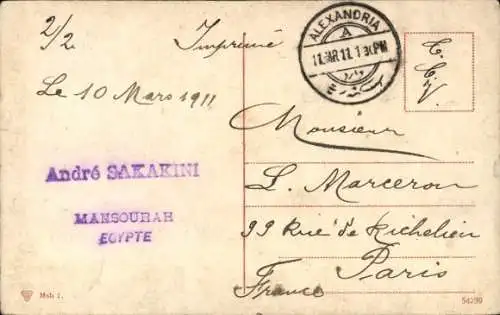 2/2
Imprimé
Le 10 Mars 1911
André SAKAKINI
MANSOURAH
EGYPTE
ALEXANDRIA
A
11.MR.11. 1 30PM
T.
C.V.
Monsieur
L. Marceron
99 Rue de Richelieu
Paris
France
Msb 1.
54299